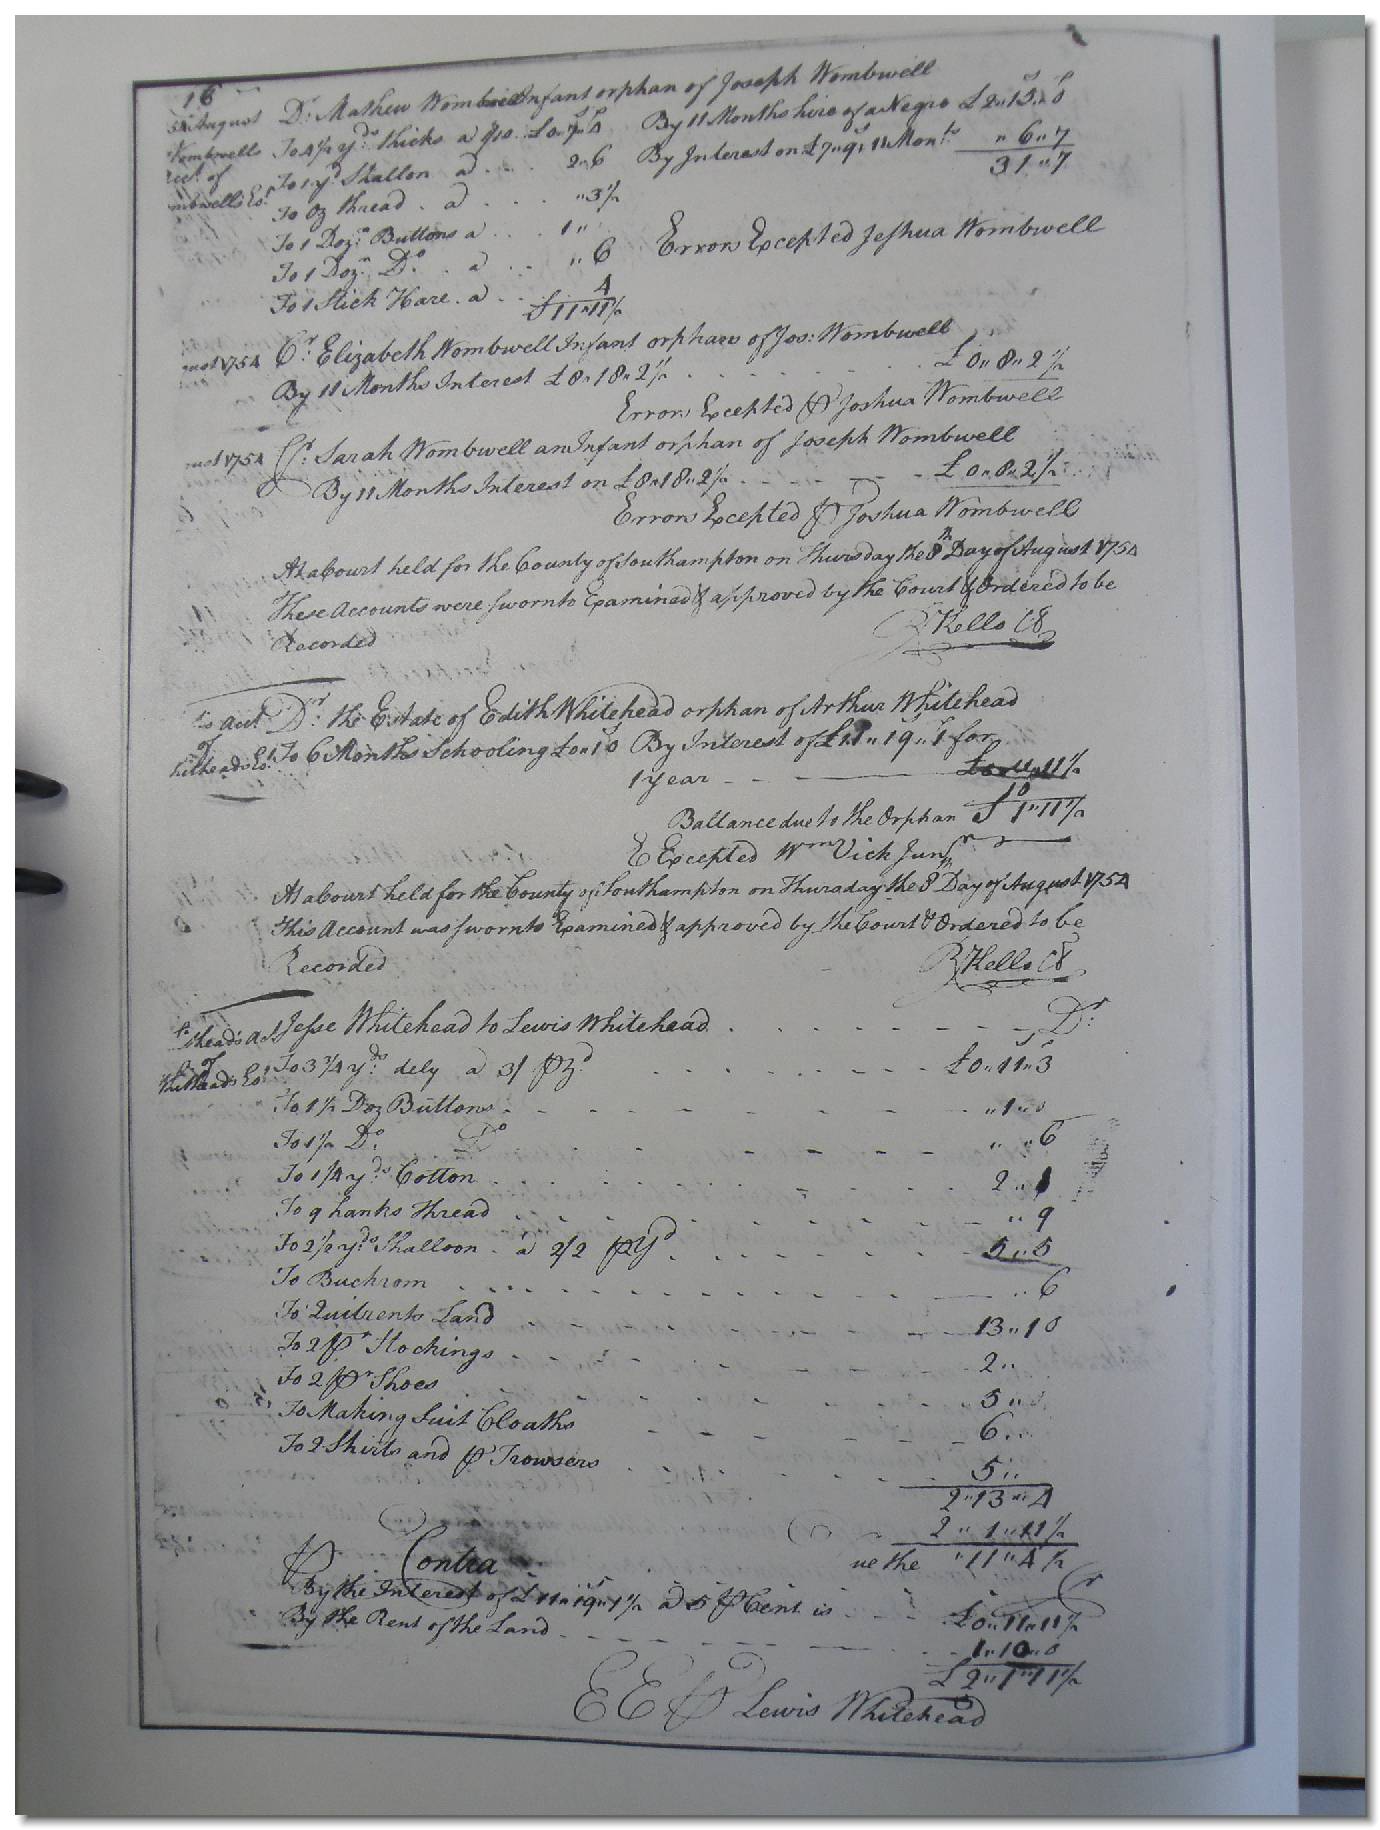 16
August Dr: Mathew Wombwell Infant orphan of Joseph Wombwell
Wombwells To 4 1/2 yds thicks a 9/10 £0"7"4 By 11 Months hire of a Negro £2"15"0
of To 1 yd Shallon a 2"6 By Interest on £7"9s 11 Months "6"7
To oz thread a "3 1/2 31"7
To 1 Dozn Buttons a 1"
To 1 Dozn Do a "6 Errors Excepted Jeshua Wombwell
To 1 Stick Hare a 4
£11"11 1/2
1754 Cr: Elizabeth Wombwell Infant orphan of Jos: Wombwell
By 11 Months Interest £8"18"2 1/2 £0"8"2 1/2
Errors Excepted P Joshua Wombwell
1754 Cr: Sarah Wombwell an Infant orphan of Joseph Wombwell
By 11 Months Interest on £8"18"2 1/2 £0"8"2 1/2
Errors Excepted P Joshua Wombwell
At a Court held for the County of Southampton on Thursday the 8th Day of August 1754
These Accounts were sworn to Examined & approved by the Court & Ordered to be
Recorded R Kello CC
Dr: the Estate of Edith Whitehead orphan of Arthur Whitehead
of To 6 Months Schooling £0"10 By Interest of £11"19"1 for
1 year £0"11"11 1/2
10
Ballance due to the Orphan £1"11 1/2
E Excepted Wm Vick Junr
At a Court held for the County of Southampton on Thursday the 8th Day of August 1754
This Account was sworn to Examined & approved by the Court & Ordered to be
Recorded R Kello CC
Jesse Whitehead to Lewis Whitehead Dr:
of To 3 3/4 yds: dely a 3/ P yd £0"11"3
To 1 1/2 Doz Buttons "1"0
To 1 1/2 Do. Do "6
To 1/4 yds Cotton 2"1
To 9 hanks thread "9
To 2 1/2 yds Shalloon a 2/2 P yd 5"5
To Buckrom "6
To Quitrents Land 13"10
To 2 Pr Stockings 2"
To 2 Pr Shoes 5"
To Making Suit Cloaths 6"
To 2 Shirts and Pr Trowsers 5"
2"13"4
2"1"11 1/2
ue the "11"4 1/2
P Contra Cr
By the Interest of £11"19"1 1/2 a 5 P Cent is £0"11"11 1/2
By the Rent of the Land 1"10"0
£2"1"11 1/2
E E P Lewis Whitehead